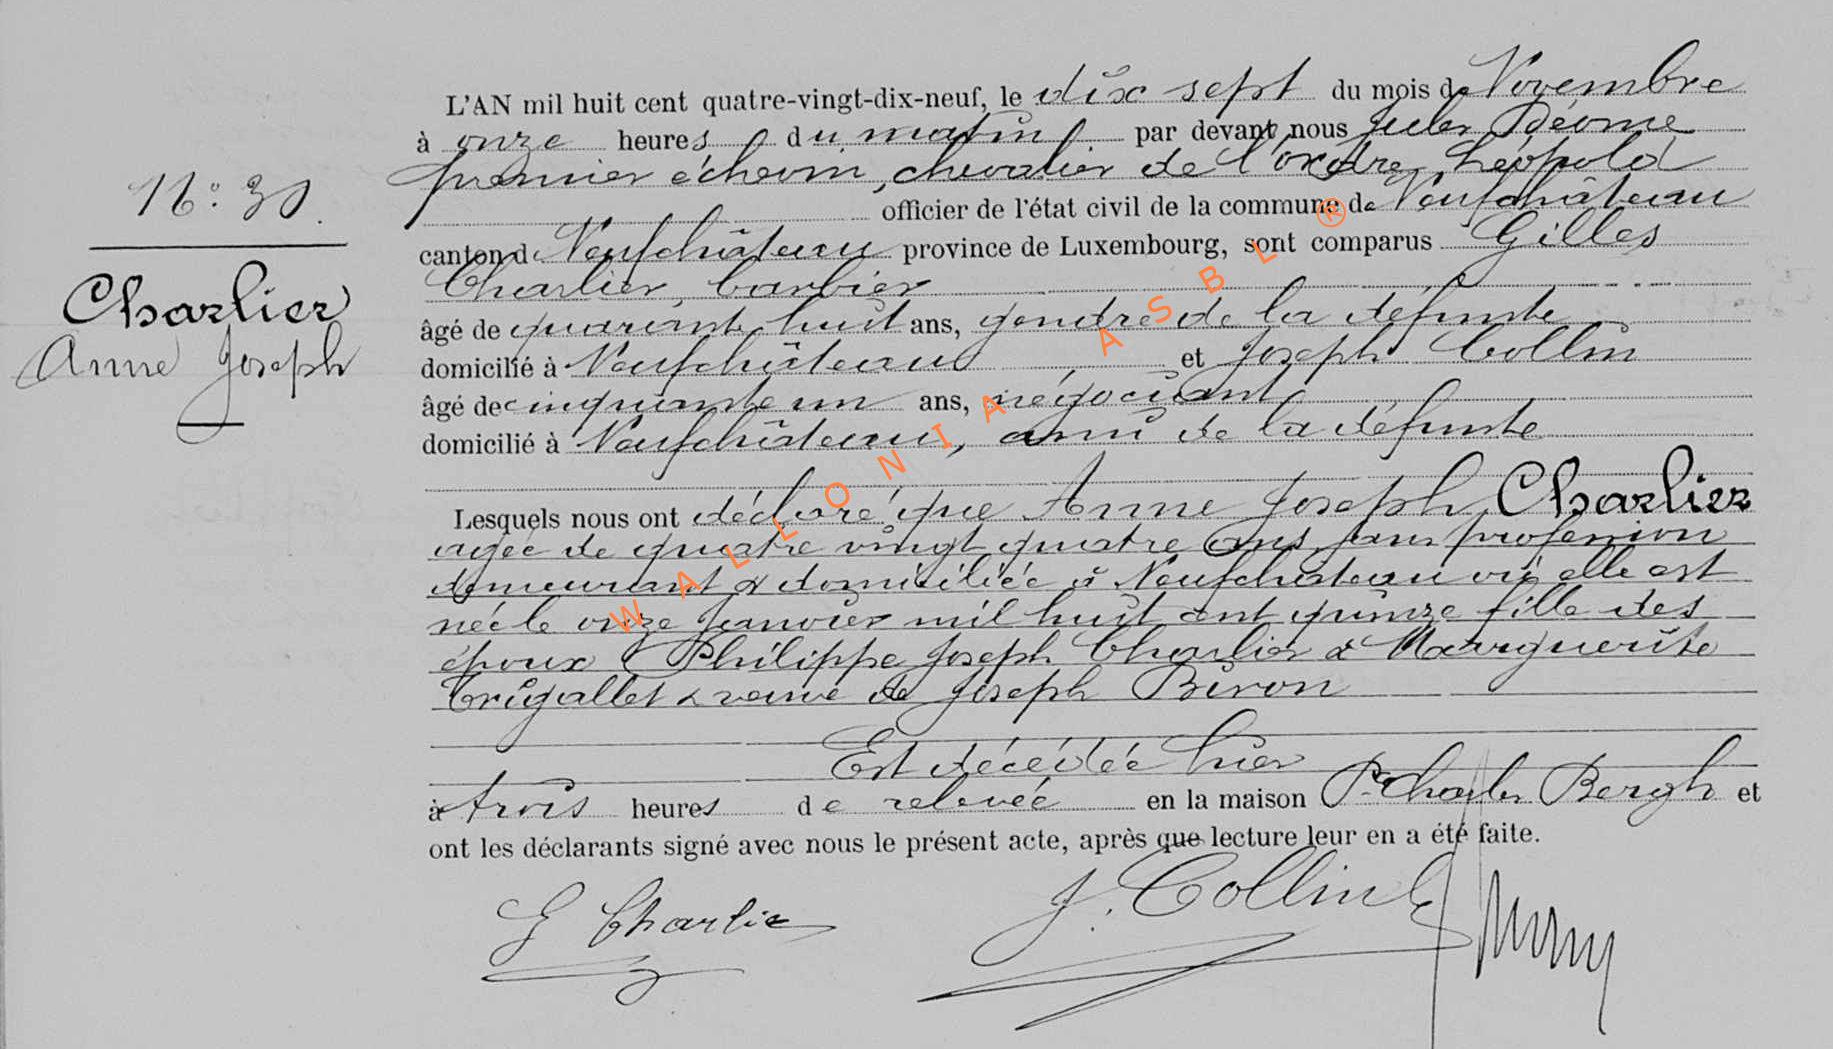 L'AN mil huit cent quatre-vingt-dix-neuf, le dix sept du mois de Novembre
à onze heures du matin par devant nous Jules Déome
premier échevin, chevalier de l'ordre Léopold
officier de l'état civil de la commune de Neufchâteau
canton d Neufchâteau province de Luxembourg, sont comparus Gilles
Charlier, barbier
âgé de quarante huit ans, gendre de la défunte
domicilié à Neufchâteau et Joseph Collin
âgé de cinquante un ans, négociant
domicilié à Neufchâteau, ami de la défunte
N°: 30.
Charlier
Anne Joseph
Lesquels nous ont déclaré que Anne Joseph Charlier
agée de quatre vingt quatre ans, sans profession
demeurant & domiciliée à Neufchateau où elle est
née le onze Janvier mil huit cent quinze fille des
époux Philippe Joseph Charlier & Marguerite
Trigallet & veuve de Joseph Biron
Est décédée hier
à trois heures de relevée en la maison Charles Bergh et
ont les déclarants signé avec nous le présent acte, après que lecture leur en a été faite.
G Charlier
J. Collin
WALLONIA ASBL ®